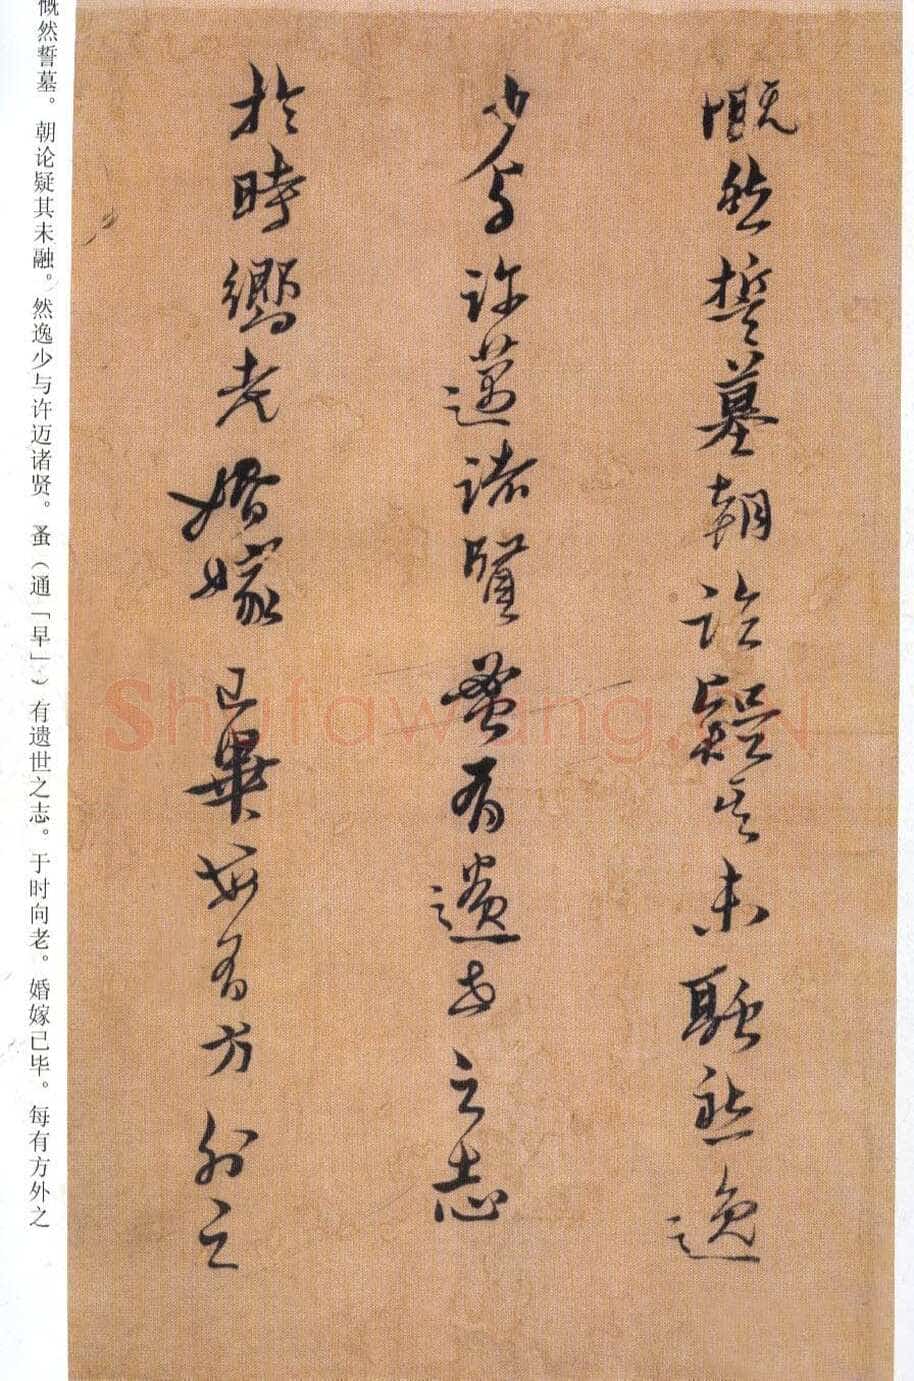 慨然誓墓朝論疑其未融然逸
少与許邁諸賢蚤有遺世之志
於時嚮老婚嫁已畢每有方外之
慨然誓墓。朝论疑其未融。然逸少与许迈诸贤。蚤（通「早」）有遗世之志。于时向老。婚嫁己毕。每有方外之
Shufawang.CN